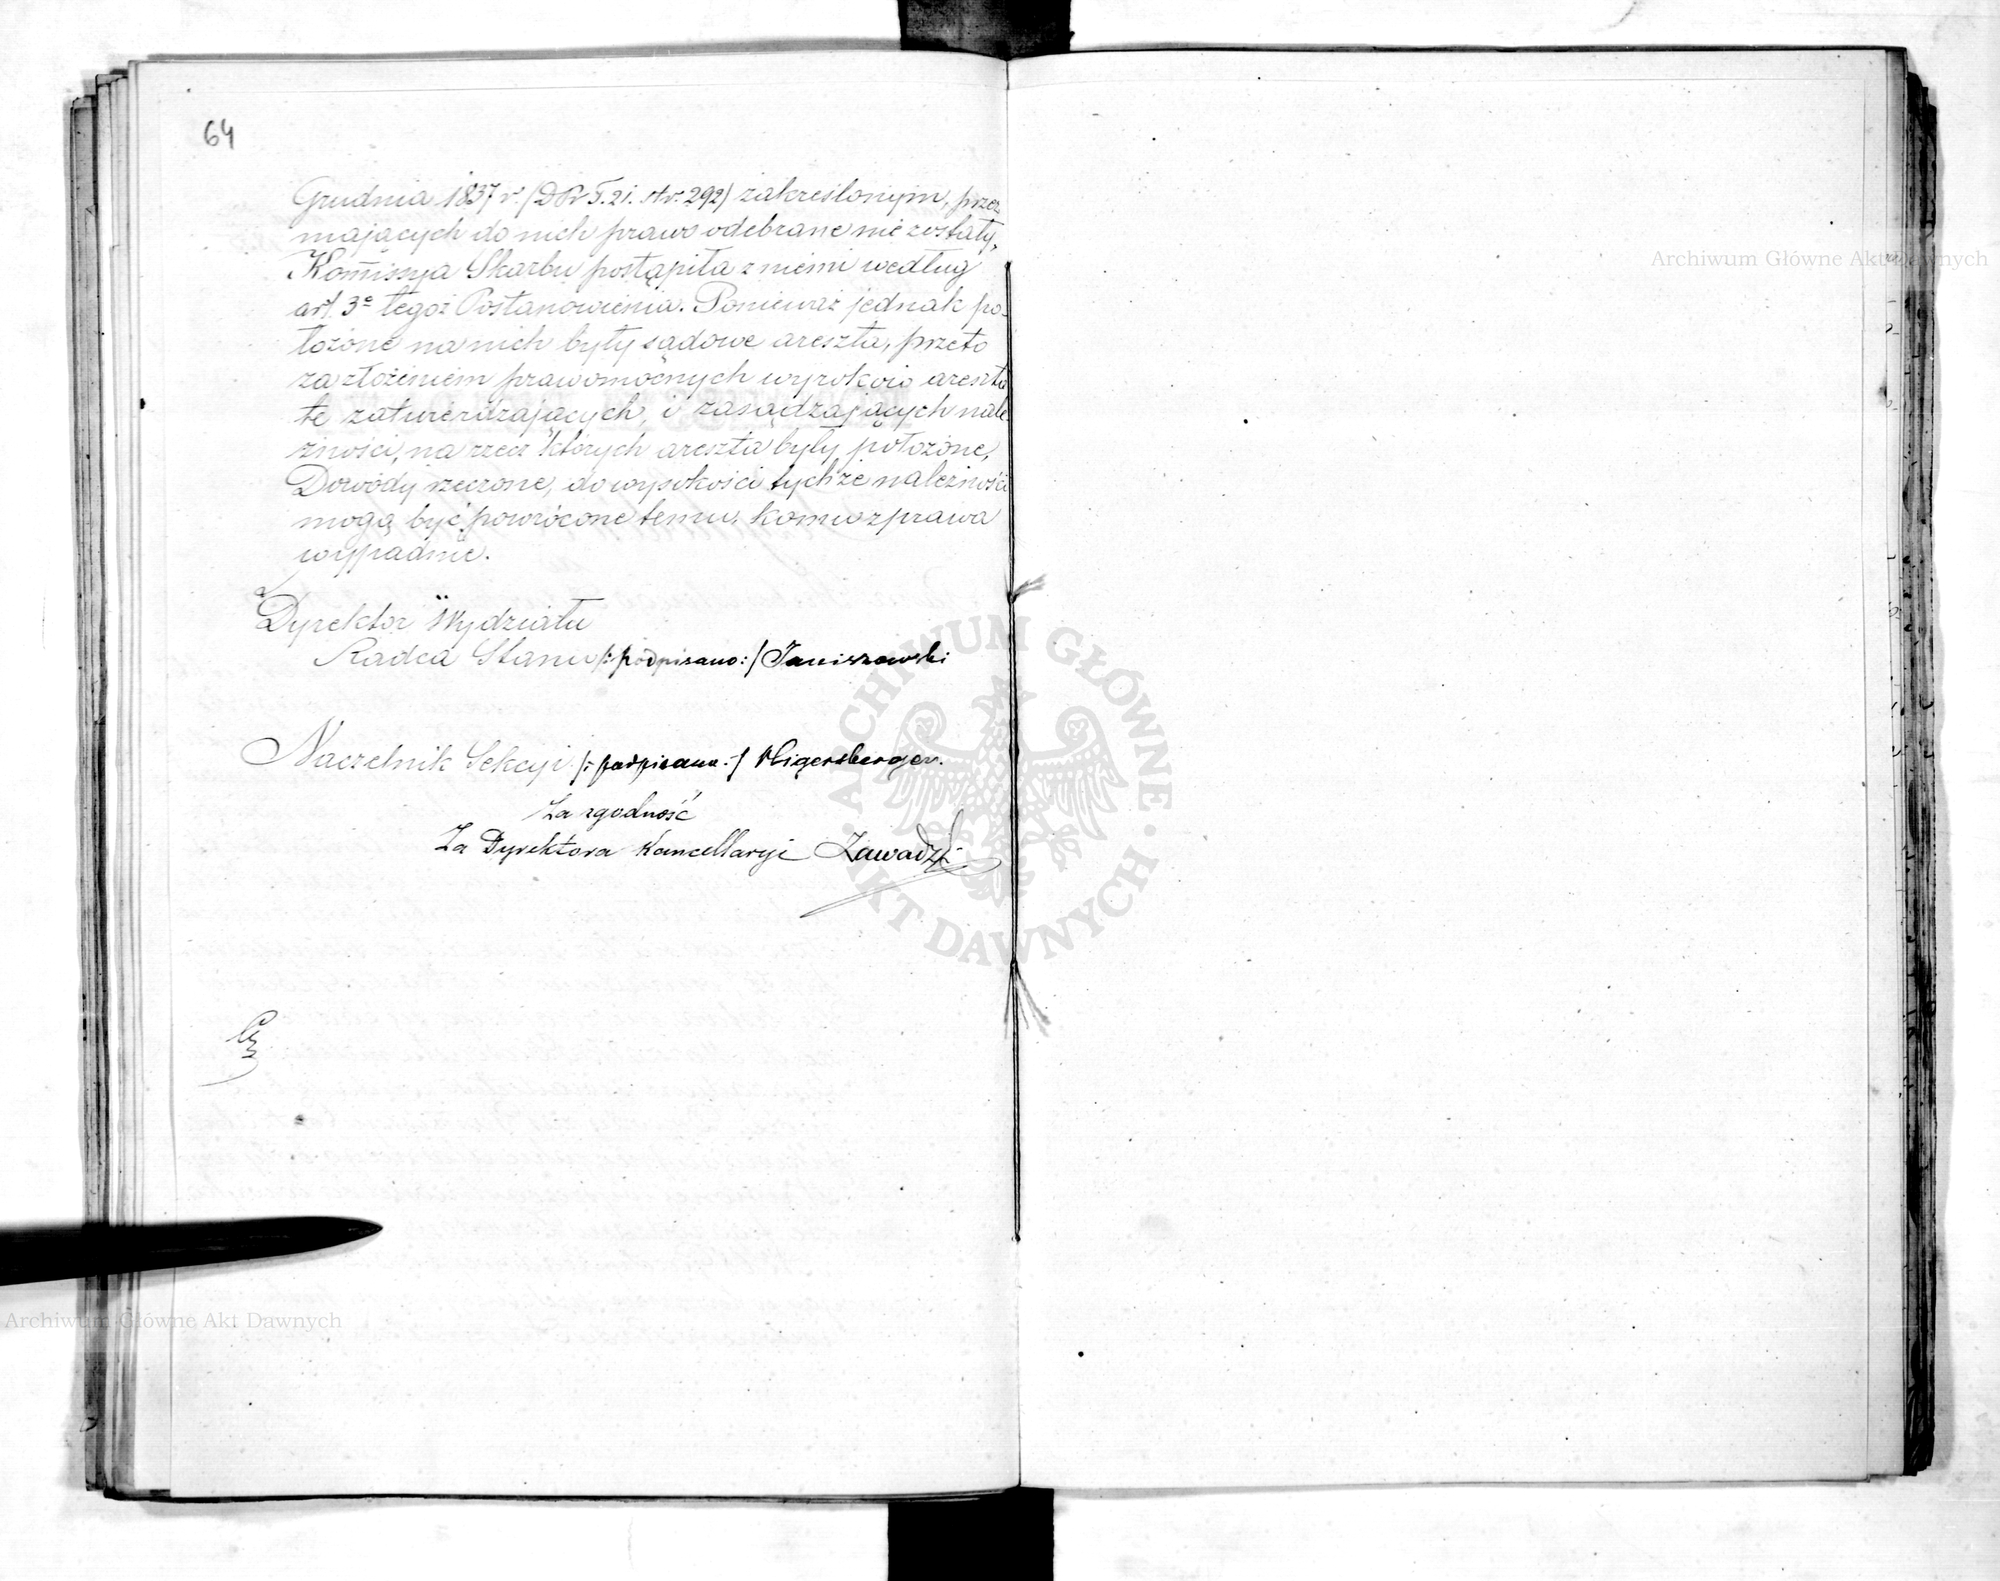 64
Grudnia 1837 r. (DPr T. 21. str. 292) zakreślonym, przez
mających do nich prawo odebrane nie zostały,
Kommissya Skarbu postąpiła z niemi według
art. 3º tegoż Postanowienia. Ponieważ jednak po-
łożone na nich były sądowe areszta, przeto
za złożeniem prawomocnych wyroków areszta
te zatwierdzających, i zasądzających nale
żności, na rzecz których areszta były położone,
Dowody rzeczone, do wysokości tychże należności
mogą być powrócone temu, komu z prawa
wypadnie.
Dyrektor Wydziału
Radca Stanu /:podpisano:/ Janiszowski
Naczelnik Sekcyi /:podpisano:/ Higersberger.
Za zgodność
Za Dyrektora Kancellaryi Zawadzki
Archiwum Główne Akt Dawnych
ARCHIWUM GŁÓWNE AKT DAWNYCH
Archiwum Główne Akt Dawnych